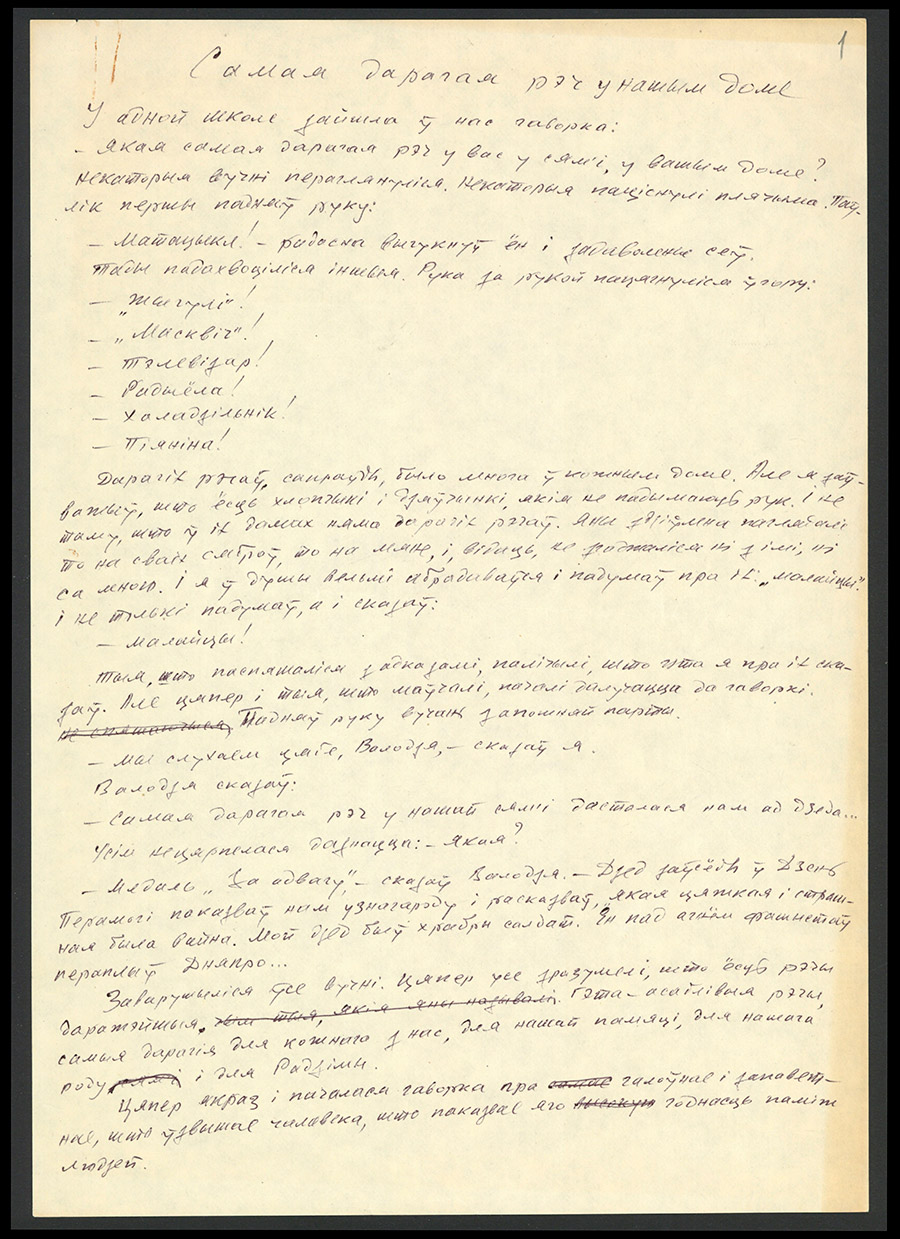 1
Самая дарагая рэч у нашым доме
У адной школе зайшла ў нас гаворка:
– Якая самая дарагая рэч у вас у сям'і, у вашым доме?
Некаторыя вучні пераглянуліся. Некаторыя паціснулі плячыма. Паў-
лік першы падняў руку:
– Матацыкл! – радасна выгукнуў ён і задаволены сеў.
Тады падахвоціліся іншыя. Рука за рукой пацягнуліся ўгору:
– „Жыгулі"!
– „Масквіч"!
– Тэлевізар!
– Радыёла!
– Халадзільнік!
– Піяніна!
Дарагіх рэчаў, сапраўды, было многа ў кожным доме. Але я заў-
важыў, што ёсць хлопчыкі і дзяўчынкі, якія не падымаюць рук. І не
таму, што ў іх дамах няма дарагіх рэчаў. Яны здзіўлена паглядалі
то на сваіх сяброў, то на мяне, і, відаць, не згаджаліся ні з імі, ні
са мною. І я ў душы вельмі абрадаваўся і падумаў пра іх: „малайцы".
І не толькі падумаў, а і сказаў:
– Малайцы!
Тыя, што паспяшаліся з адказамі, палічылі, што гэта я пра іх ска-
заў. Але цяпер і тыя, што маўчалі, пачалі далучацца да гаворкі.
не спяшаючыся, Падняў руку вучань з апошняй парты.
– Мы слухаем цябе, Валодзя, – сказаў я.
Валодзя сказаў:
– Самая дарагая рэч у нашай сям'і дасталася нам ад дзеда...
Усім не цярпелася дазнацца: – Якая?
– Медаль „За адвагу", – сказаў Валодзя. – Дзед заўсёды ў Дзень
Перамогі паказваў нам узнагароду і расказваў, якая цяжкая і страш-
ная была вайна. Мой дзед быў храбры салдат. Ён пад агнём фашыстаў
пераплыў Дняпро...
Заварушыліся ўсе вучні. Цяпер усе зразумелі, што ёсць рэчы
даражэйшыя, чым тыя, якія яны называлі. Гэта – асаблівыя рэчы,
самыя дарагія для кожнага з нас, для нашай памяці, для нашага
роду, сям'і і для Радзімы.
Цяпер якраз і пачалася гаворка пра самае галоўнае і запавет-
нае, што ўзвышае чалавека, што паказвае яго высокую годнасць паміж
людзей.